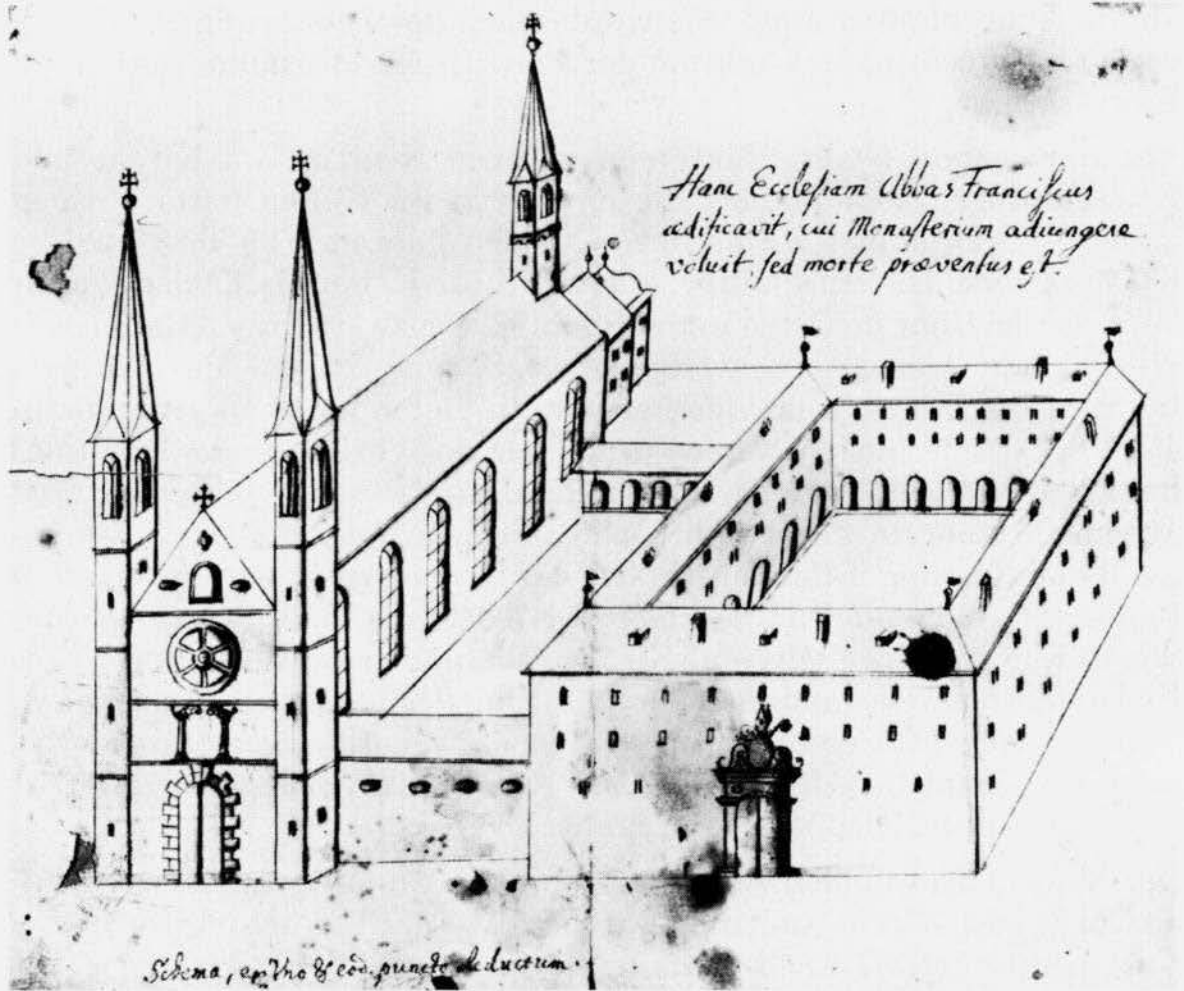 Hanc Ecclesiam Abbas Franciscus
ædificavit, cui Monasterium adiungere
voluit. sed morte præventus est.
Schema, ex Vno & eod. puncto deductum.